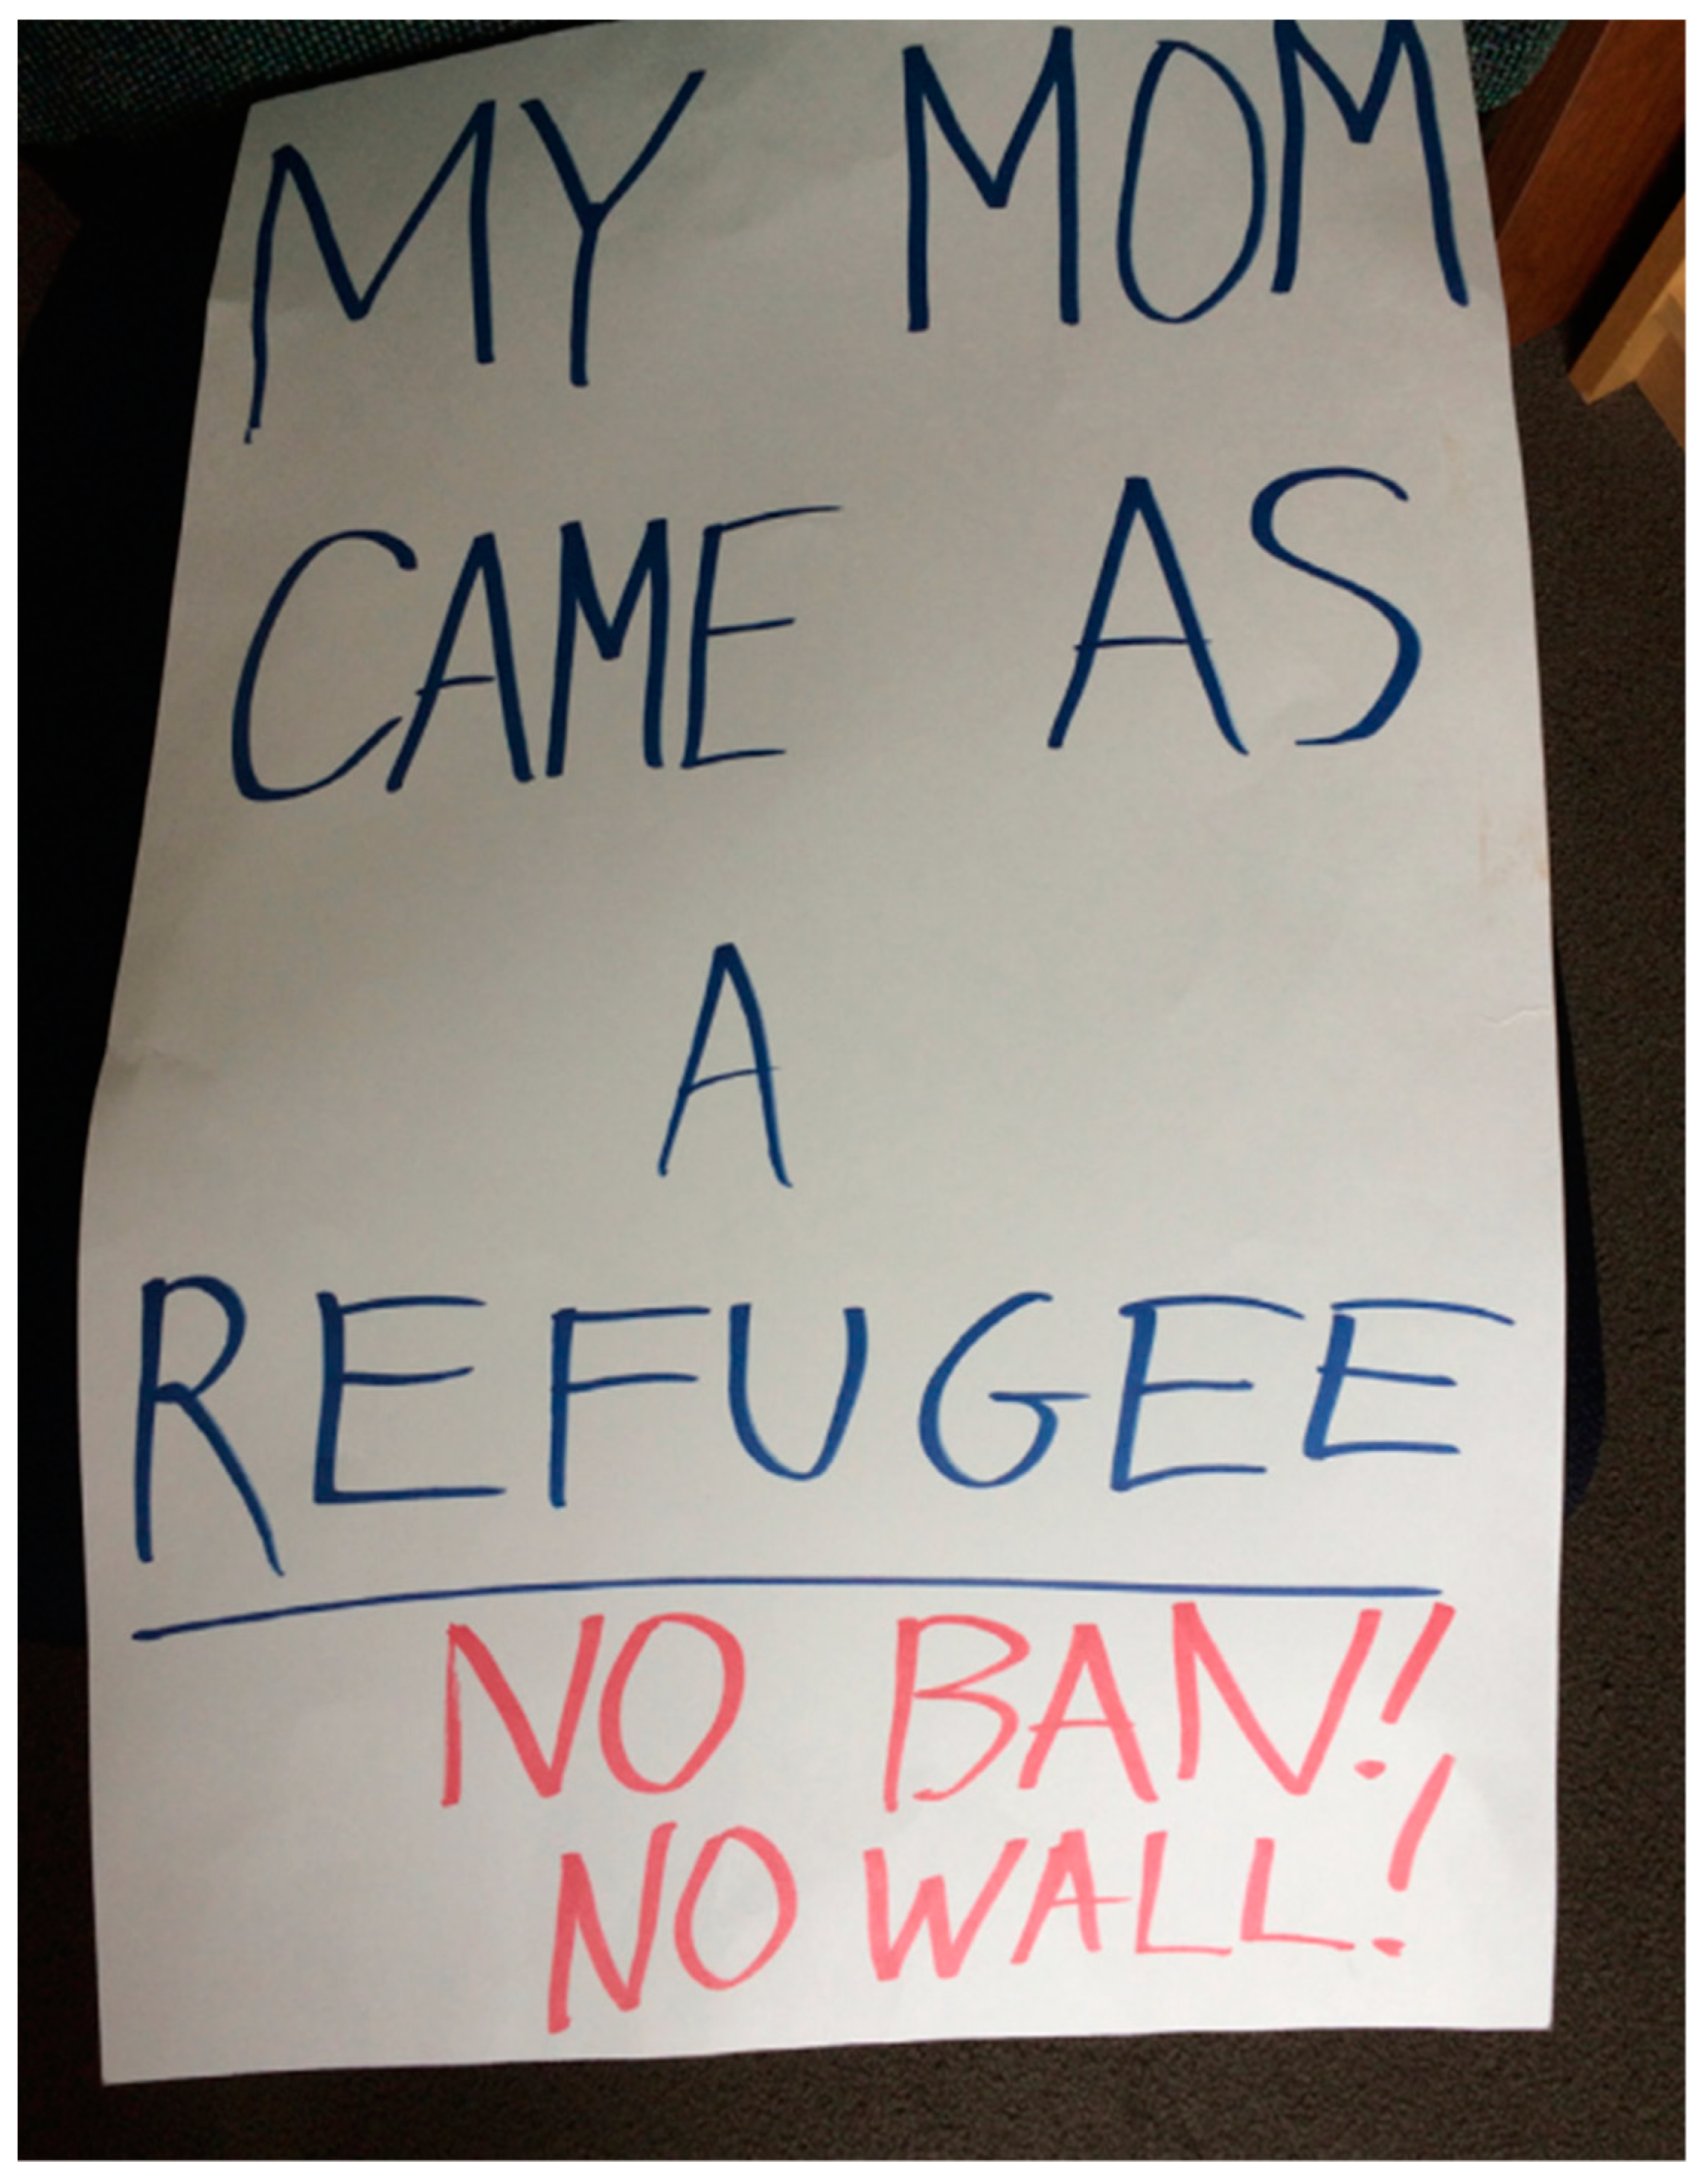 MY MOM
CAME AS
A
REFUGEE
NO BAN!!
NO WALL!